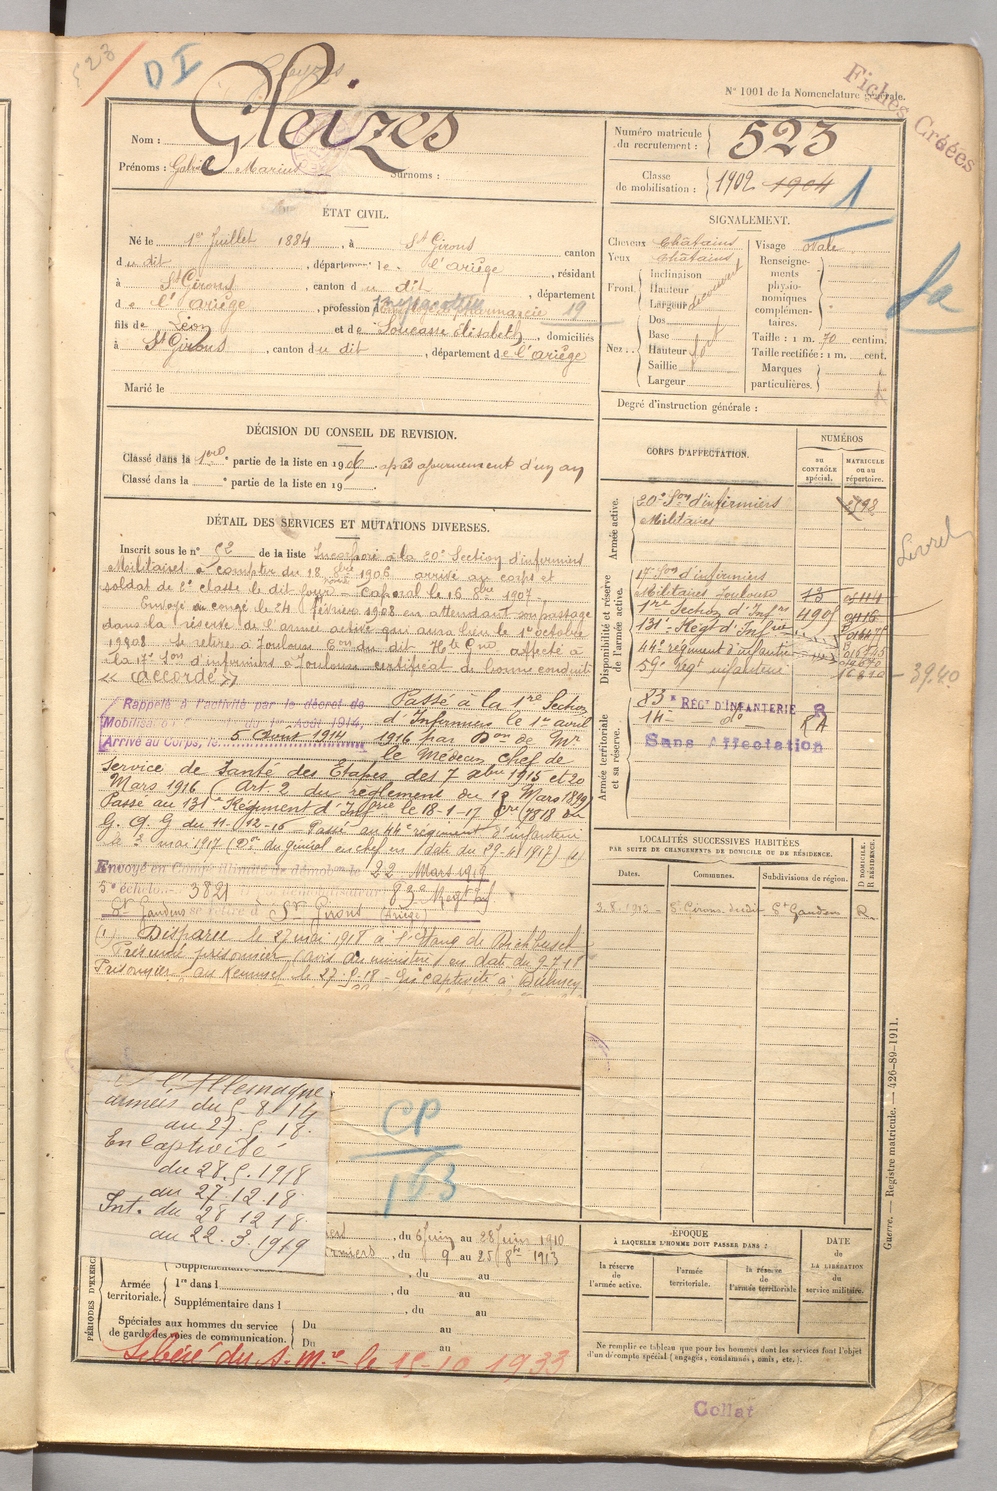 523
DI
N° 1001 de la Nomenclature générale.
Fiches Créées
Nom : Gleizes
Prénoms : Gabriel Marius
Surnoms :
Numéro matricule du recrutement : 523
Classe de mobilisation : 1902 1904
1
ÉTAT CIVIL.
Né le 1er Juillet 1884, à St Girons canton
du dit, département de l'Ariège, résidant
à St Girons, canton du dit, département
de l'Ariège, profession pharmacie 19
fils de Léon et de Soucasse Elisabeth, domiciliés
à St Girons, canton du dit, département de l'Ariège
Marié le
SIGNALEMENT.
Cheveux Châtains
Yeux Châtains
Front. Inclinaison
Hauteur
Largeur découvert
Nez.. Dos
Base
Hauteur fort
Saillie
Largeur
Visage ovale
Renseignements physionomiques complémentaires.
Taille : 1 m. 70 centim.
Taille rectifiée : 1 m. cent.
Marques particulières.
Degré d'instruction générale :
DÉCISION DU CONSEIL DE REVISION.
Classé dans la 1ère partie de la liste en 1906 après ajournement d'un an
Classé dans la partie de la liste en 19
DÉTAIL DES SERVICES ET MUTATIONS DIVERSES.
Inscrit sous le n° 52 de la liste Incorporé à la 20e Section d'infirmiers
Militaires à compter du 18 8bre 1906 arrivé au corps et
soldat de 2e classe le dit jour. Caporal le 16 8bre 1907.
Envoyé en congé le 24 février 1908 en attendant son passage
dans la réserve de l'armée active qui aura lieu le 1er octobre
1908 Se retire à Toulouse Con du dit Hte Gne affecté à
la 17e Son d'infirmiers à Toulouse certificat de bonne conduite
<< accordé >>
Rappelé à l'activité par le décret de
Mobilisation du 1er Août 1914,
Arrivé au Corps, le 5 Août 1914
Passé à la 1re Section
d'Infirmiers le 1er avril
1916 par Don de Mr
le Médecin chef de
Service de Santé des Etapes des 7 xbre 1915 et 20
Mars 1916 (Art 2 du règlement du 1 Mars 1899)
Passé au 131e Régiment d'Infrie le 18-1-17 (7818 du
G. Q. G du 11-12-16 - Passé au 44e régiment d'infanterie
le 3 mai 1917 (Don du général en chef en date du 29-4-1917) (1)
Envoyé en congé illimité de démob le 22 Mars 1919
5e échelon 3821 83e Régt Inf
St Gaudens se retire à St Girons (Ariège)
(1) Disparu le 27 mai 1918 à l'Etang de
Présumé prisonnier (avis du ministère) en date du 9-7-18
Prisonnier le 27-5-18 - En captivité à
l'Allemagne
armées du 5. 8. 14
au 27. 5. 18.
En Captivité
du 28. 5. 1918
au 27. 12. 18.
Int. du 28 12 18.
au 22. 3. 1919
CP
153
CORPS D'AFFECTATION.
NUMÉROS
au CONTRÔLE spécial.
MATRICULE ou au répertoire.
Armée active.
20e Son d'infirmiers
Militaires
Disponibilité et réserve de l'armée active.
17e Son d'infirmiers
Militaires Toulouse
1re Section d'Infres 4905
131e Régt d'Infrie
44e régiment d'infanterie
59e régt infanterie
Livret
3940
Armée territoriale et sa réserve.
83e RÉGt D'INFANTERIE
14 do
Sans Affectation
LOCALITÉS SUCCESSIVES HABITÉES
PAR SUITE DE CHANGEMENTS DE DOMICILE OU DE RÉSIDENCE.
Dates.
Communes.
Subdivisions de région.
D DOMICILE. R RÉSIDENCE.
3.8.1913 St Girons du dit St Gaudens R.
PÉRIODES D'EXERC
, du 6 Juin au 28 Juin 1910
, du 9 au 25 8bre 1913
Supplémentaire , du au
Armée territoriale. 1re dans l , du au
Supplémentaire dans l , du au
Spéciales aux hommes du service de garde des voies de communication. Du au
Du au
Libéré du S. Mre le 15-10 1933
ÉPOQUE
À LAQUELLE L'HOMME DOIT PASSER DANS :
la réserve de l'armée active.
l'armée territoriale.
la réserve de l'armée territoriale
DATE de LA LIBÉRATION du service militaire.
Ne remplir ce tableau que pour les hommes dont les services font l'objet
d'un décompte spécial (engagés, condamnés, omis, etc.).
Guerre. — Registre matricule. — 426-89-1911.
Collat